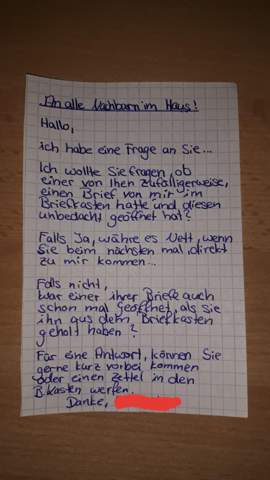 An alle Nachbarn im Haus!
Hallo,
ich habe eine Frage an Sie...
Ich wollte Sie fragen, ob
einer von Ihen zufälligerweise,
einen Brief von mir im
Briefkasten hatte und diesen
unbedacht geöffnet hat?
Falls Ja, währe es Nett, wenn
Sie beim nächsten mal, direkt
zu mir kommen...
Falls nicht,
war einer ihrer Briefe auch
schon mal geöffnet, als sie
ihn aus dem Briefkasten
geholt haben?
Für eine Antwort, können Sie
gerne kurz vorbei kommen
oder einen Zettel in den
B.kasten werfen.
Danke,